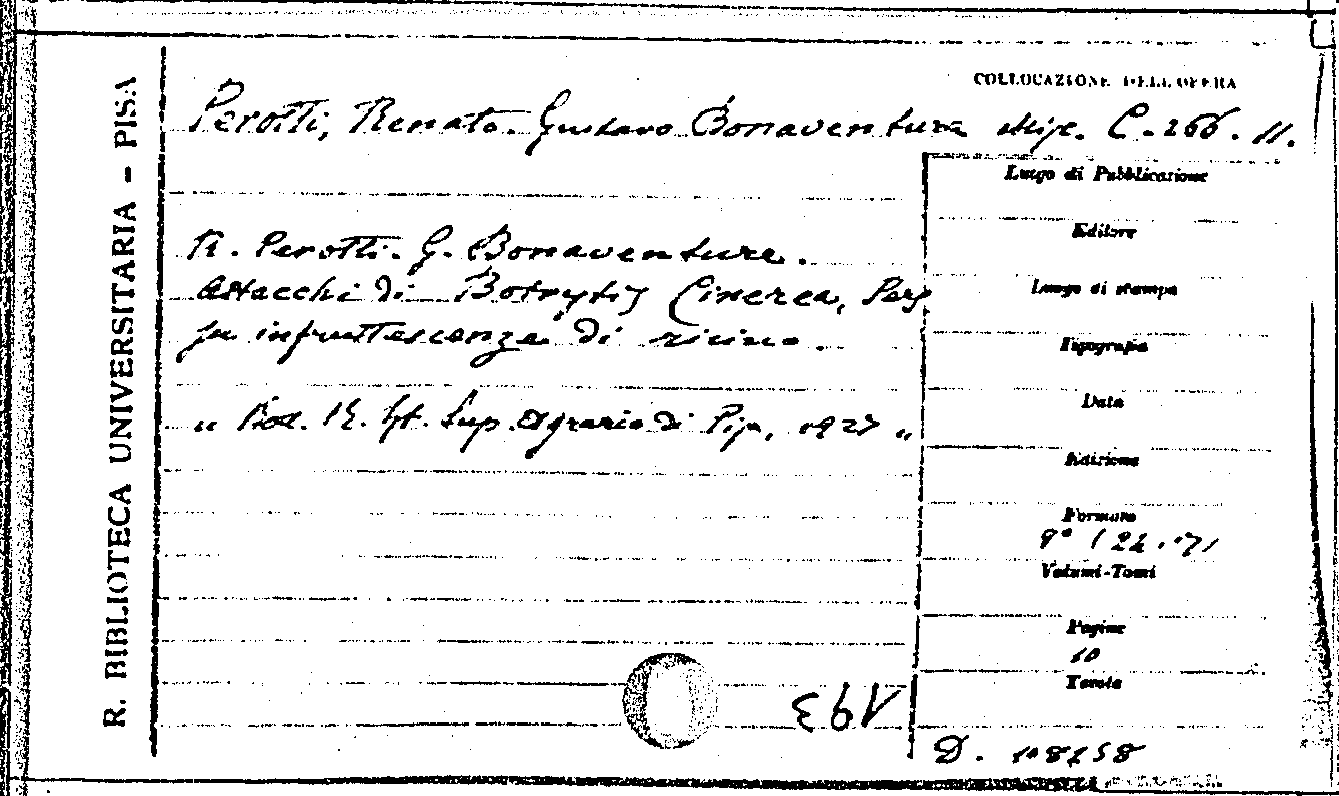 R. BIBLIOTECA UNIVERSITARIA - PISA
COLLOCAZIONE DELL'OPERA
Perotti, Renato. Gustavo Bonaventura Misc. C. 266. 11.
Luogo di Pubblicazione
Editore
Luogo di stampa
Tipografia
Data
Edizione
Formato
8°
Volumi-Tomi
Pagine
10
Tavole
R. Perotti. G. Bonaventura.
Attacchi di Botrytis Cinerea, Pers
su infruttescenza di ricino.
" Boll. R. Ist. Sup. Agrario di Pisa, 1927 "
193
D. 108258